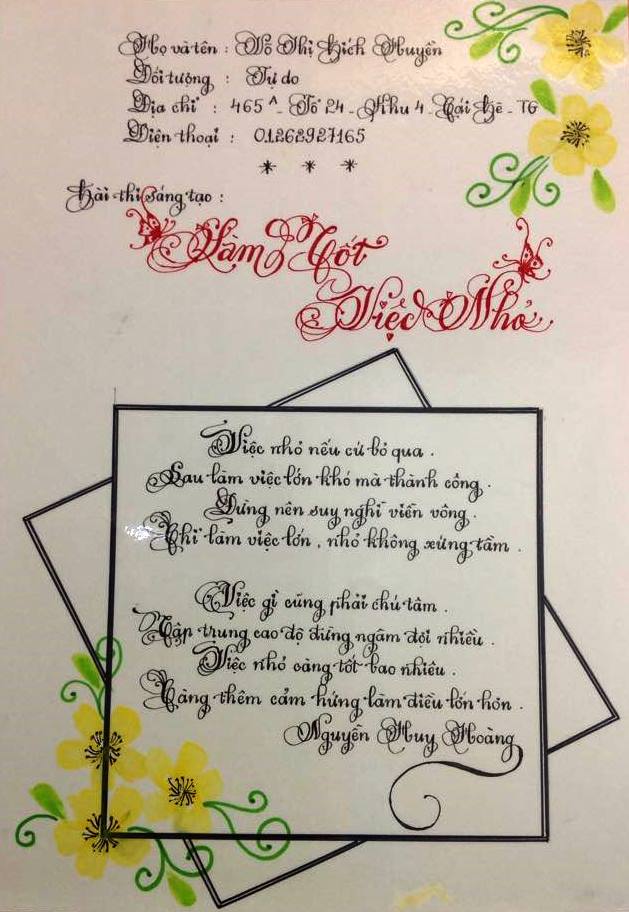 Họ và tên : Võ Thị Bích Huyền
Đối tượng : Tự do
Địa chỉ : 465 A - Tổ 24 - Khu 4 - Cái Bè - TG
Điện thoại : 01262927165
* * *
Bài thi sáng tạo :
Làm Tốt
Việc Nhỏ
Việc nhỏ nếu cứ bỏ qua .
Sau làm việc lớn khó mà thành công .
Đừng nên suy nghĩ viễn vông .
Chỉ làm việc lớn , nhỏ không xứng tầm .
Việc gì cũng phải chú tâm .
Tập trung cao độ đừng ngâm đợi nhiều .
Việc nhỏ càng tốt bao nhiêu .
Càng thêm cảm hứng làm điều lớn hơn .
Nguyễn Huy Hoàng